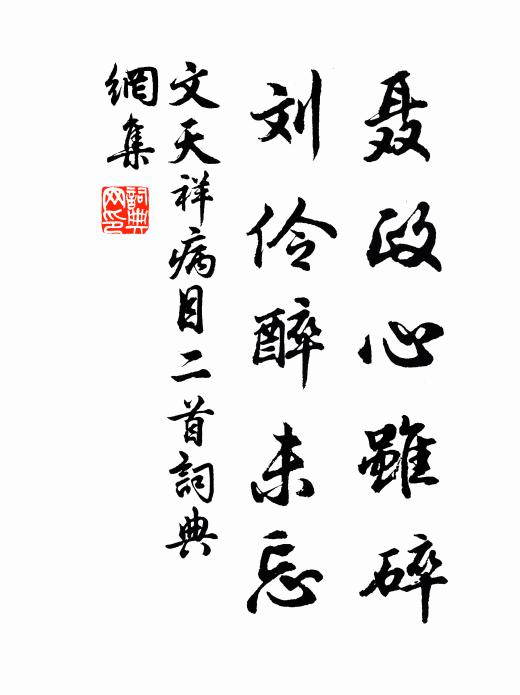 聂政心雖碎
刘伶醉未忘
文天祥病目二首詞典
網集
詞典网印